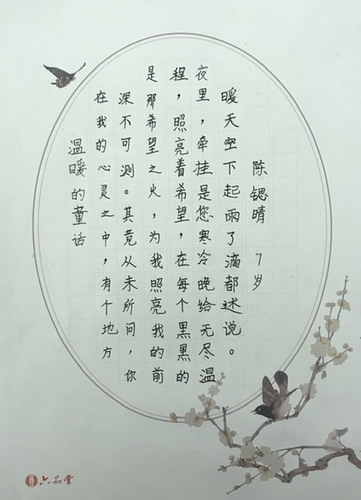 温暖的童话
在我的心灵之中，有个地方
深不可测。其竟从未所问，你
是那希望之火，为我照亮我的前
程，照亮着希望，在每个黑黑的
夜里，牵挂是您寒冷晚给无尽温
暖天空下起雨了滴都述说。
陈锶晴 7岁
六品堂